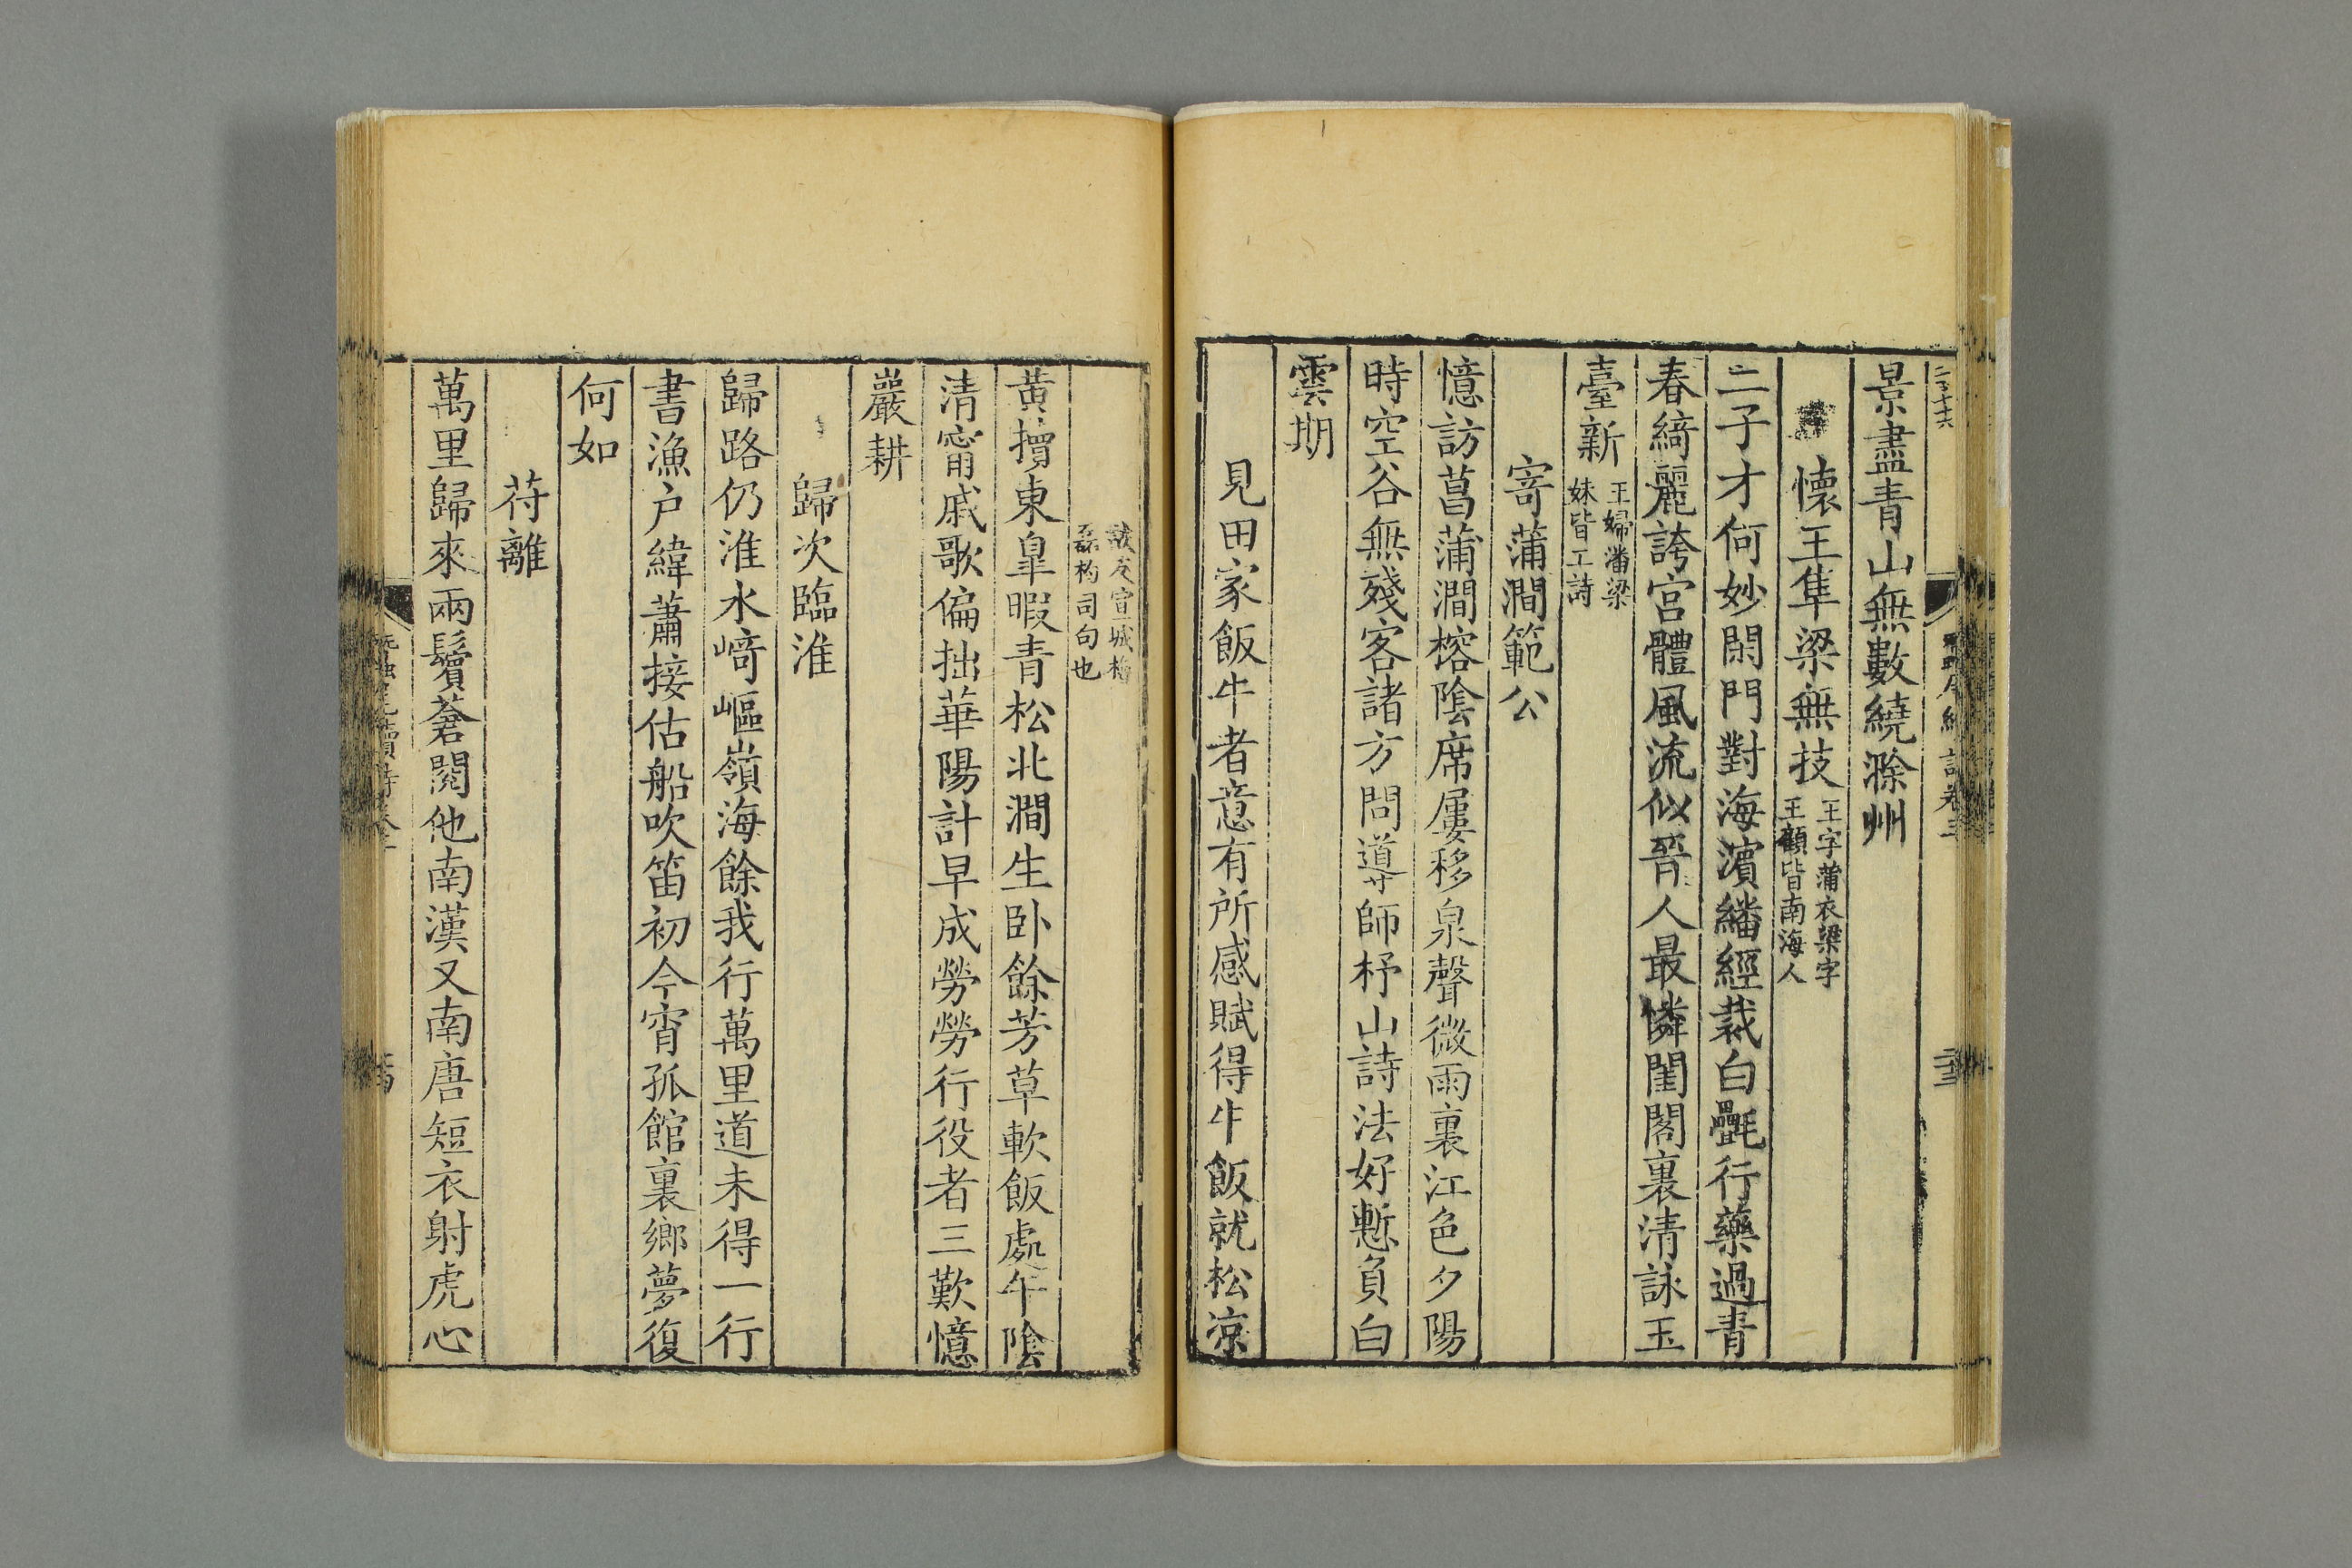 景盡青山無數繞滁州
懷王隼梁無技
王字蒲衣梁字
王顧皆南海人
二子才何妙閑門對海濵繙經裁白㲲行藥過青
春綺麗誇宫體風流似晉人最憐閨閣裏清詠玉
臺新
王婦潘梁
妹皆工詩
寄蒲澗範公
憶訪菖蒲澗榕陰席屢移泉聲微雨裏江色夕陽
時空谷無殘客諸方問導師杼山詩法好慙負白
雲期
見田家飯牛者意有所感賦得牛飯就松凉
誠友宣城梅
磊杓司句也
黄犢東臯暇青松北澗生卧餘芳草軟飯處午陰
清甯戚歌偏拙華陽計早成勞勞行役者三歎憶
巖耕
歸次臨淮
歸路仍淮水﨑嶇嶺海餘我行萬里道未得一行
書漁户緯蕭接估船吹笛初今宵孤館裏鄉夢復
何如
苻離
萬里歸來兩鬢蒼閱他南漢又南唐短衣射虎心